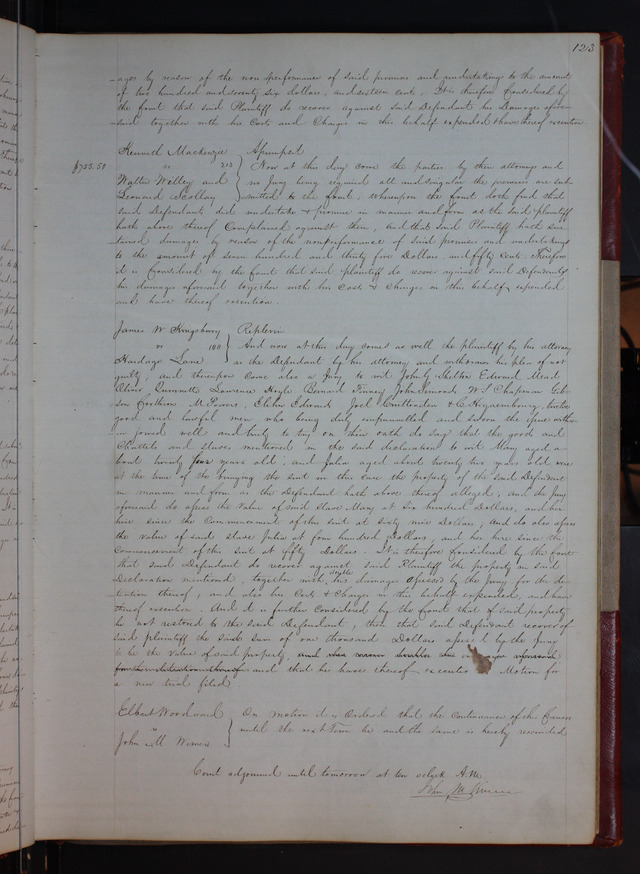 123
ages by reason of the non performance of said promises and undertakings to the amount
of two hundred and seventy six dollars, and sixteen cents. It is therefore Considered by
the Court that said Plaintiff do recover against said Defendants his Damages afore-
said together with his Costs and Charges in this behalf expended & have thereof execution
Kenneth Mackenzie Assumpsit
$735.50 vs 213 Now at this day come the parties by their attorneys and
Walter Willey and no Jury being required all and singular the premises are sub-
Leonard Scollay mitted to the Court. Whereupon the Court doth find that
said Defendants did undertake & promise in manner and form as the said plaintiff
hath above thereof Complained against them, And that said Plaintiff hath sus-
tained damages by reason of the nonperformance of said promises and undertakings
to the amount of seven hundred and thirty five Dollars and fifty Cents. Therefore
it is Considered by the Court that said plaintiff do recover against said Defendants
his damages aforesaid together with his Costs & Charges in this behalf expended
and have thereof execution.
James W Kingsbury Replevin
vs 180 And now at this day comes as well the plaintiff by his attorney
Hardage Lane as the Defendant by his attorney and withdraws his plea of not
guilty, and thereupon Came also a Jury to wit John G Shelton Edward Mead
Oliver Lawrence Bernard John Simonds W. S. Chapman Gib-
son M. Elihu Edwards Joel & C. twelve
good and lawful men who being duly empannelled and sworn the issue with-
in joined well and truly to try on their oath do say that the goods and
Chattels and slaves mentioned in the said declaration to wit Mary aged a-
bout twenty four years old, and Julia aged about twenty two years old were
at the time of the bringing the suit in this case the property of the said Defendant
in manner and form as the Defendant hath above thereof alleged, and the Jury
aforesaid do assess the value of said slave Mary at six hundred Dollars, and her
hire since the Commencement of this suit at sixty nine Dollars, and do also assess
the value of said slave Julia at four hundred Dollars, and her hire since the
Commencement of this suit at fifty Dollars. It is therefore Considered by the Court
that said Defendant do recover against said Plaintiff the property in said
Declaration mentioned, together with double his damages assessed by the Jury for the de-
tention thereof, and also his Costs & Charges in this behalf expended, and have
thereof execution. And it is further Considered by the Court that if said property
be not restored to the said Defendant, then that said Defendant recover of
said plaintiff the said sum of one thousand Dollars assessed by the Jury
to be the value of said property, and also recover double the damages aforesaid
for the detention thereof and that he have thereof execution Motion for
a new trial filed
Elbert Woodward On motion it is Ordered that the Continuance of the Cause
vs until the next Term be and the same is hereby rescinded
John M Wimer
Court adjourned until tomorrow at ten oclock A.M.